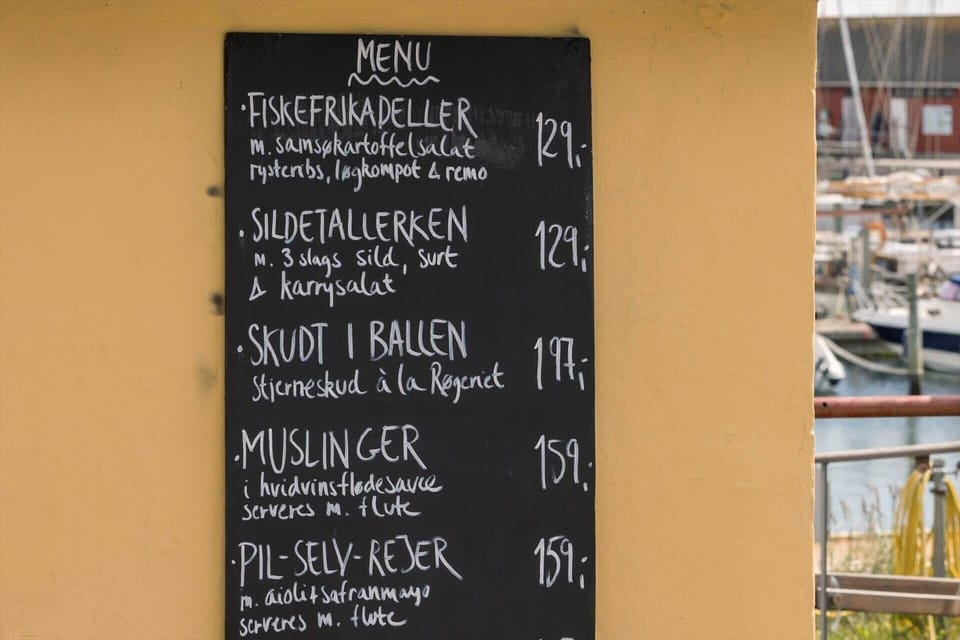 MENU
·FISKEFRIKADELLER 129,-
m. samsøkartoffelsalat
rysteribs, løgkompot & remo
·SILDETALLERKEN 129,-
m. 3 slags sild, surt
& karrysalat
·SKUDT I BALLEN 197,-
Stjerneskud à la Røgeriet
·MUSLINGER 159,-
i hvidvinsflødesauce
serveres m. flute
·PIL-SELV-REJER 159,-
m. aioli + safranmayo
serveres m. flute